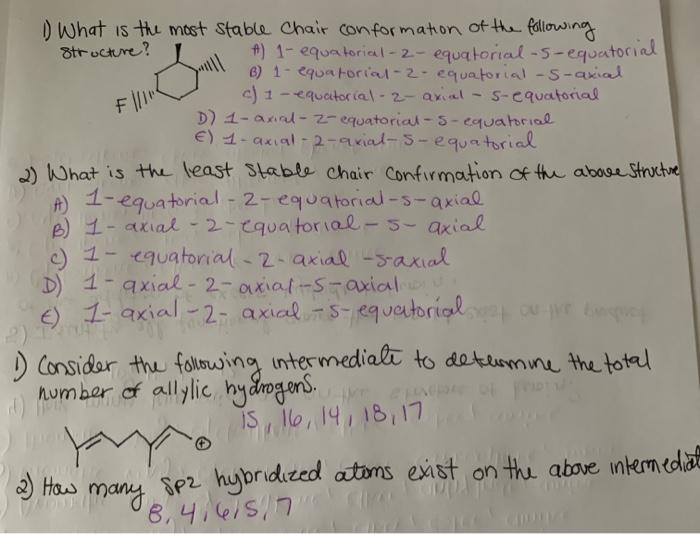 1) What is the most stable chair conformation of the following
structure?
A) 1-equatorial-2-equatorial-5-equatorial
B) 1-equatorial-2-equatorial-5-axial
C) 1-equatorial-2-axial-5-equatorial
D) 1-axial-2-equatorial-5-equatorial
E) 1-axial-2-axial-5-equatorial
F
2) What is the least stable chair confirmation of the above structure
A) 1-equatorial-2-equatorial-5-axial
B) 1-axial-2-equatorial-5-axial
C) 1-equatorial-2-axial-5-axial
D) 1-axial-2-axial-5-axial
E) 1-axial-2-axial-5-equatorial
1) Consider the following intermediate to determine the total
number of allylic hydrogens.
15, 16, 14, 18, 17
+
2) How many sp2 hybridized atoms exist on the above intermediat
8, 4, 6, 5, 7